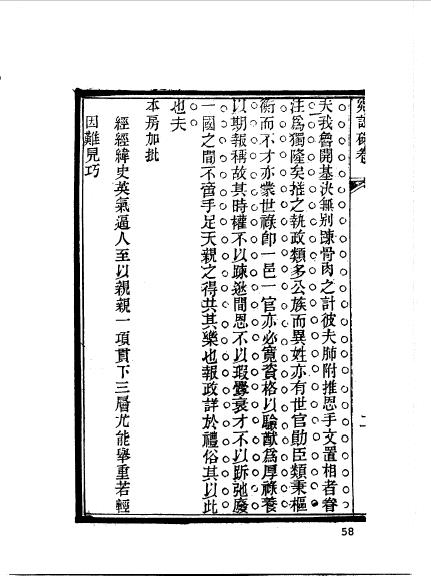 硃卷
二
夫我魯開基決無別疎骨肉之計彼夫肺附推恩手文置相者眷
注爲獨隆矣推之執政類多公族而異姓亦有世官勛臣類秉樞
衡而不才亦蒙世祿卽一邑一官亦必寬資格以驗猷爲厚祿養
以期報稱故其時權不以疎逖間恩不以瑕釁衰才不以跅弛廢
一國之間不啻手足天親之得共其樂也報政詳於禮俗其以此
也夫
本房加批
經經緯史英氣逼人至以親親一項貫下三層尤能舉重若輕
因難見巧
58